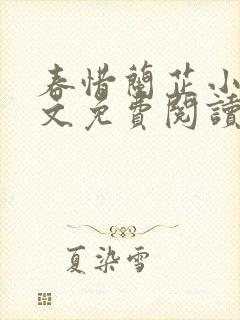 春惜蘭芷小
文免費閱讀
夏染雪